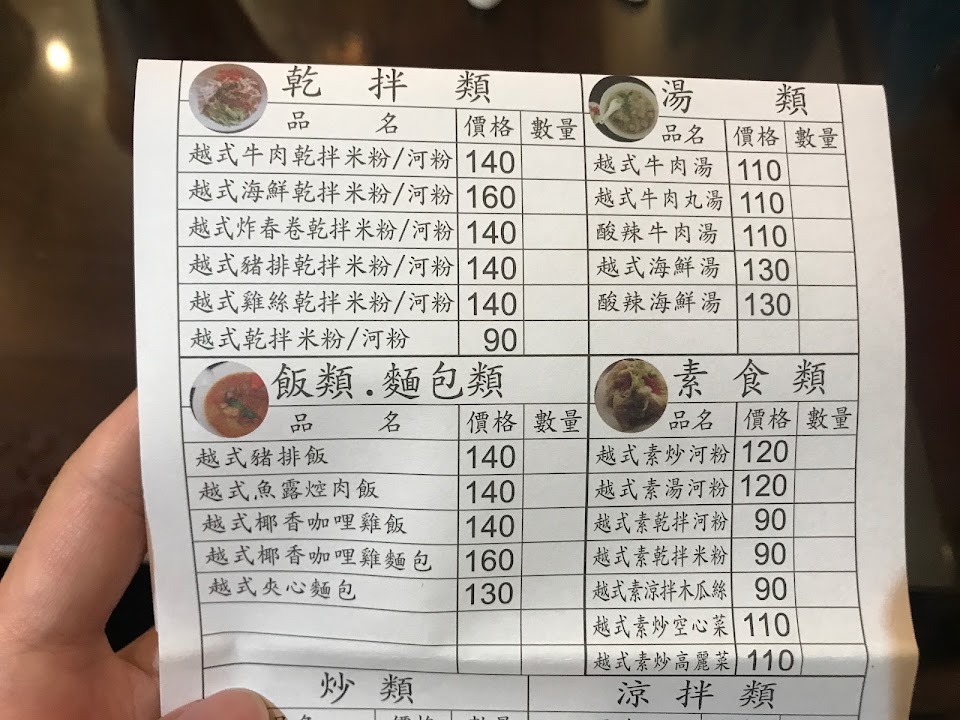 乾拌類
品名 價格 數量
越式牛肉乾拌米粉/河粉 140
越式海鮮乾拌米粉/河粉 160
越式炸春卷乾拌米粉/河粉 140
越式豬排乾拌米粉/河粉 140
越式雞絲乾拌米粉/河粉 140
越式乾拌米粉/河粉 90
湯類
品名 價格 數量
越式牛肉湯 110
越式牛肉丸湯 110
酸辣牛肉湯 110
越式海鮮湯 130
酸辣海鮮湯 130
飯類.麵包類
品名 價格 數量
越式豬排飯 140
越式魚露焢肉飯 140
越式椰香咖哩雞飯 140
越式椰香咖哩雞麵包 160
越式夾心麵包 130
素食類
品名 價格 數量
越式素炒河粉 120
越式素湯河粉 120
越式素乾拌河粉 90
越式素乾拌米粉 90
越式素涼拌木瓜絲 90
越式素炒空心菜 110
越式素炒高麗菜 110
炒類
涼拌類